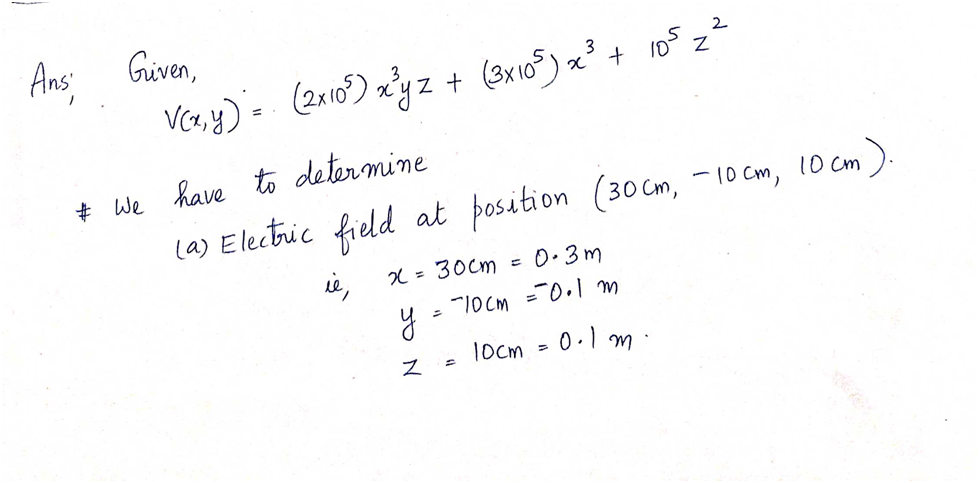 Ans; Given,
V(x,y) = (2x10⁵) x³yz + (3x10⁵) x³ + 10⁵ z²
# We have to determine
(a) Electric field at position (30cm, -10cm, 10cm).
ie, x = 30cm = 0.3m
y = -10cm = -0.1 m
z = 10cm = 0.1 m.